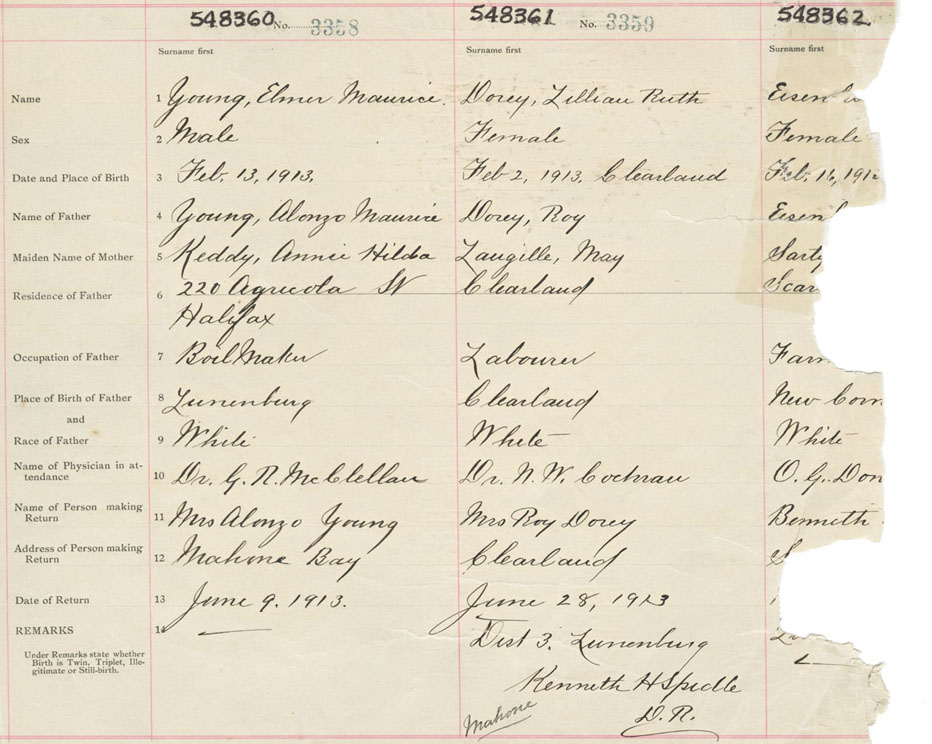 548360 No. 3358 548361 No. 3359 548362
Surname first Surname first Surname first
Name 1 Young, Elmer Maurice. Dorey, Lillian Ruth Eisen
Sex 2 Male Female Female
Date and Place of Birth 3 Feb. 13, 1913. Feb 2, 1913. Clearland Feb. 16, 191
Name of Father 4 Young, Alonzo Maurice Dorey, Roy Eisen
Maiden Name of Mother 5 Keddy, Annie Hilda Langille, May Sarty
Residence of Father 6 220 Agricola St Clearland Scar
Halifax
Occupation of Father 7 BoilMaker Labourer Farm
Place of Birth of Father 8 Lunenburg Clearland New Corn
and
Race of Father 9 White White White
Name of Physician in at-
tendance 10 Dr. G. R. McClellan Dr. N. W. Cochran O. G. Don
Name of Person making
Return 11 Mrs Alonzo Young Mrs Roy Dorey Benneth
Address of Person making
Return 12 Mahone Bay Clearland S
Date of Return 13 June 9. 1913. June 28, 1913
REMARKS 14
Dist 3. Lunenburg
Under Remarks state whether
Birth is Twin, Triplet, Ille-
gitimate or Still-birth.
Kenneth H Spidle
Mahone D. R.